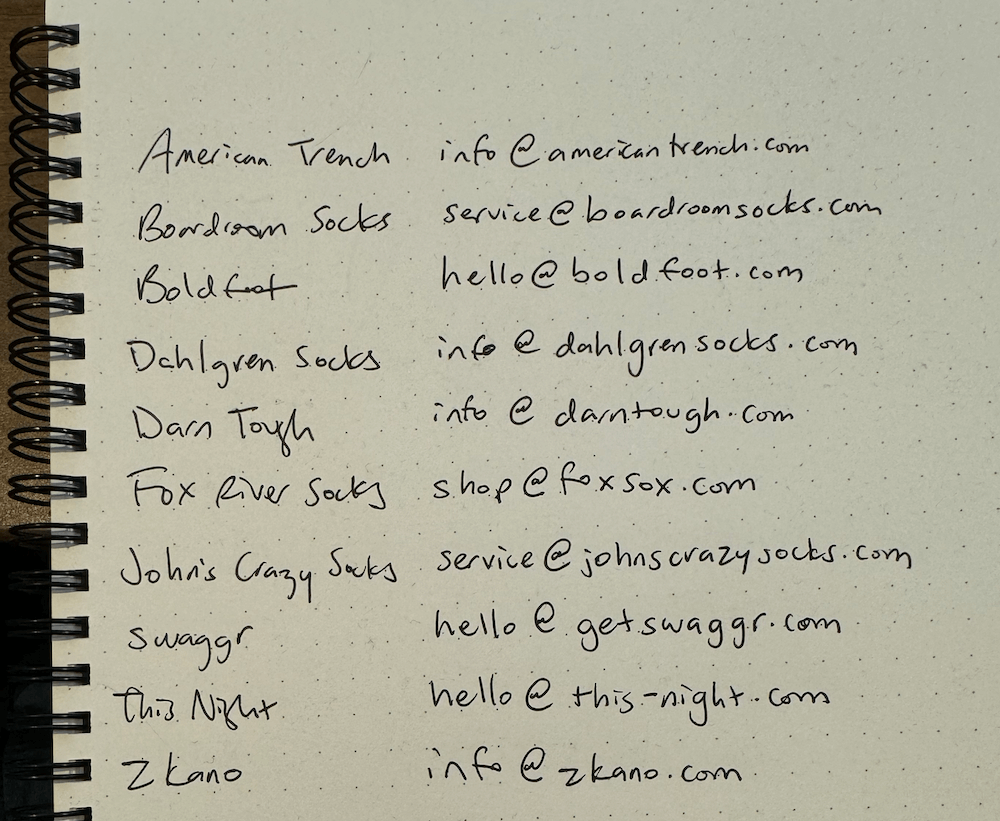 American Trench info@americantrench.com
Boardroom Socks service@boardroomsocks.com
Boldfoot hello@boldfoot.com
Dahlgren Socks info@dahlgrensocks.com
Darn Tough info@darntough.com
Fox River Socks shop@foxsox.com
John's Crazy Socks service@johnscrazysocks.com
swaggr hello@getswaggr.com
This Night hello@this-night.com
Zkano info@zkano.com